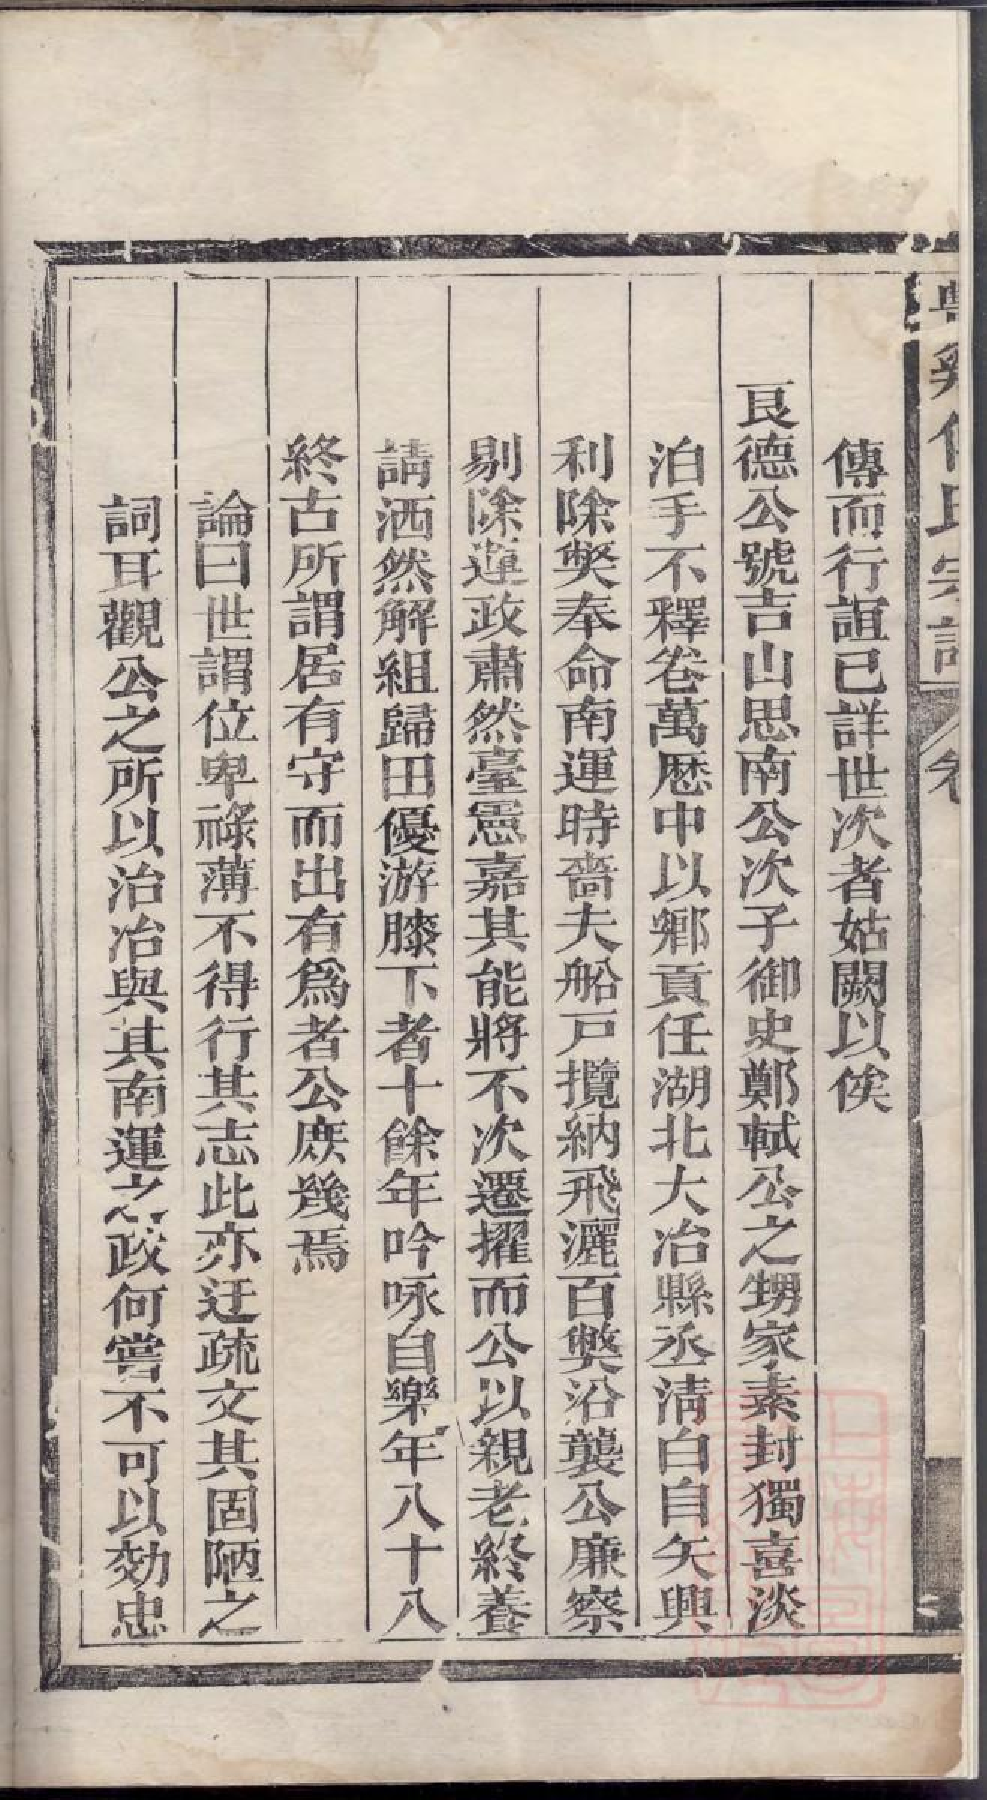 傳而行誼已詳世次者姑闕以俟
良德公號吉山思南公次子御史鄭軾公之甥家素封獨喜淡
泊手不釋卷萬歷中以鄉貢任湖北大冶縣丞清白自矢興
利除獘奉命南運時嗇夫船戸攬納飛灑百獘沿襲公廉察
剔除蓮政肅然臺憲嘉其能將不次遷擢而公以親老終養
請洒然解組歸田優游膝下者十餘年吟咏自樂年八十八
終古所謂居有守而出有爲者公庶幾焉
論曰世謂位卑祿薄不得行其志此亦迂疏文其固陋之
詞耳觀公之所以治冶與其南運之政何嘗不可以効忠